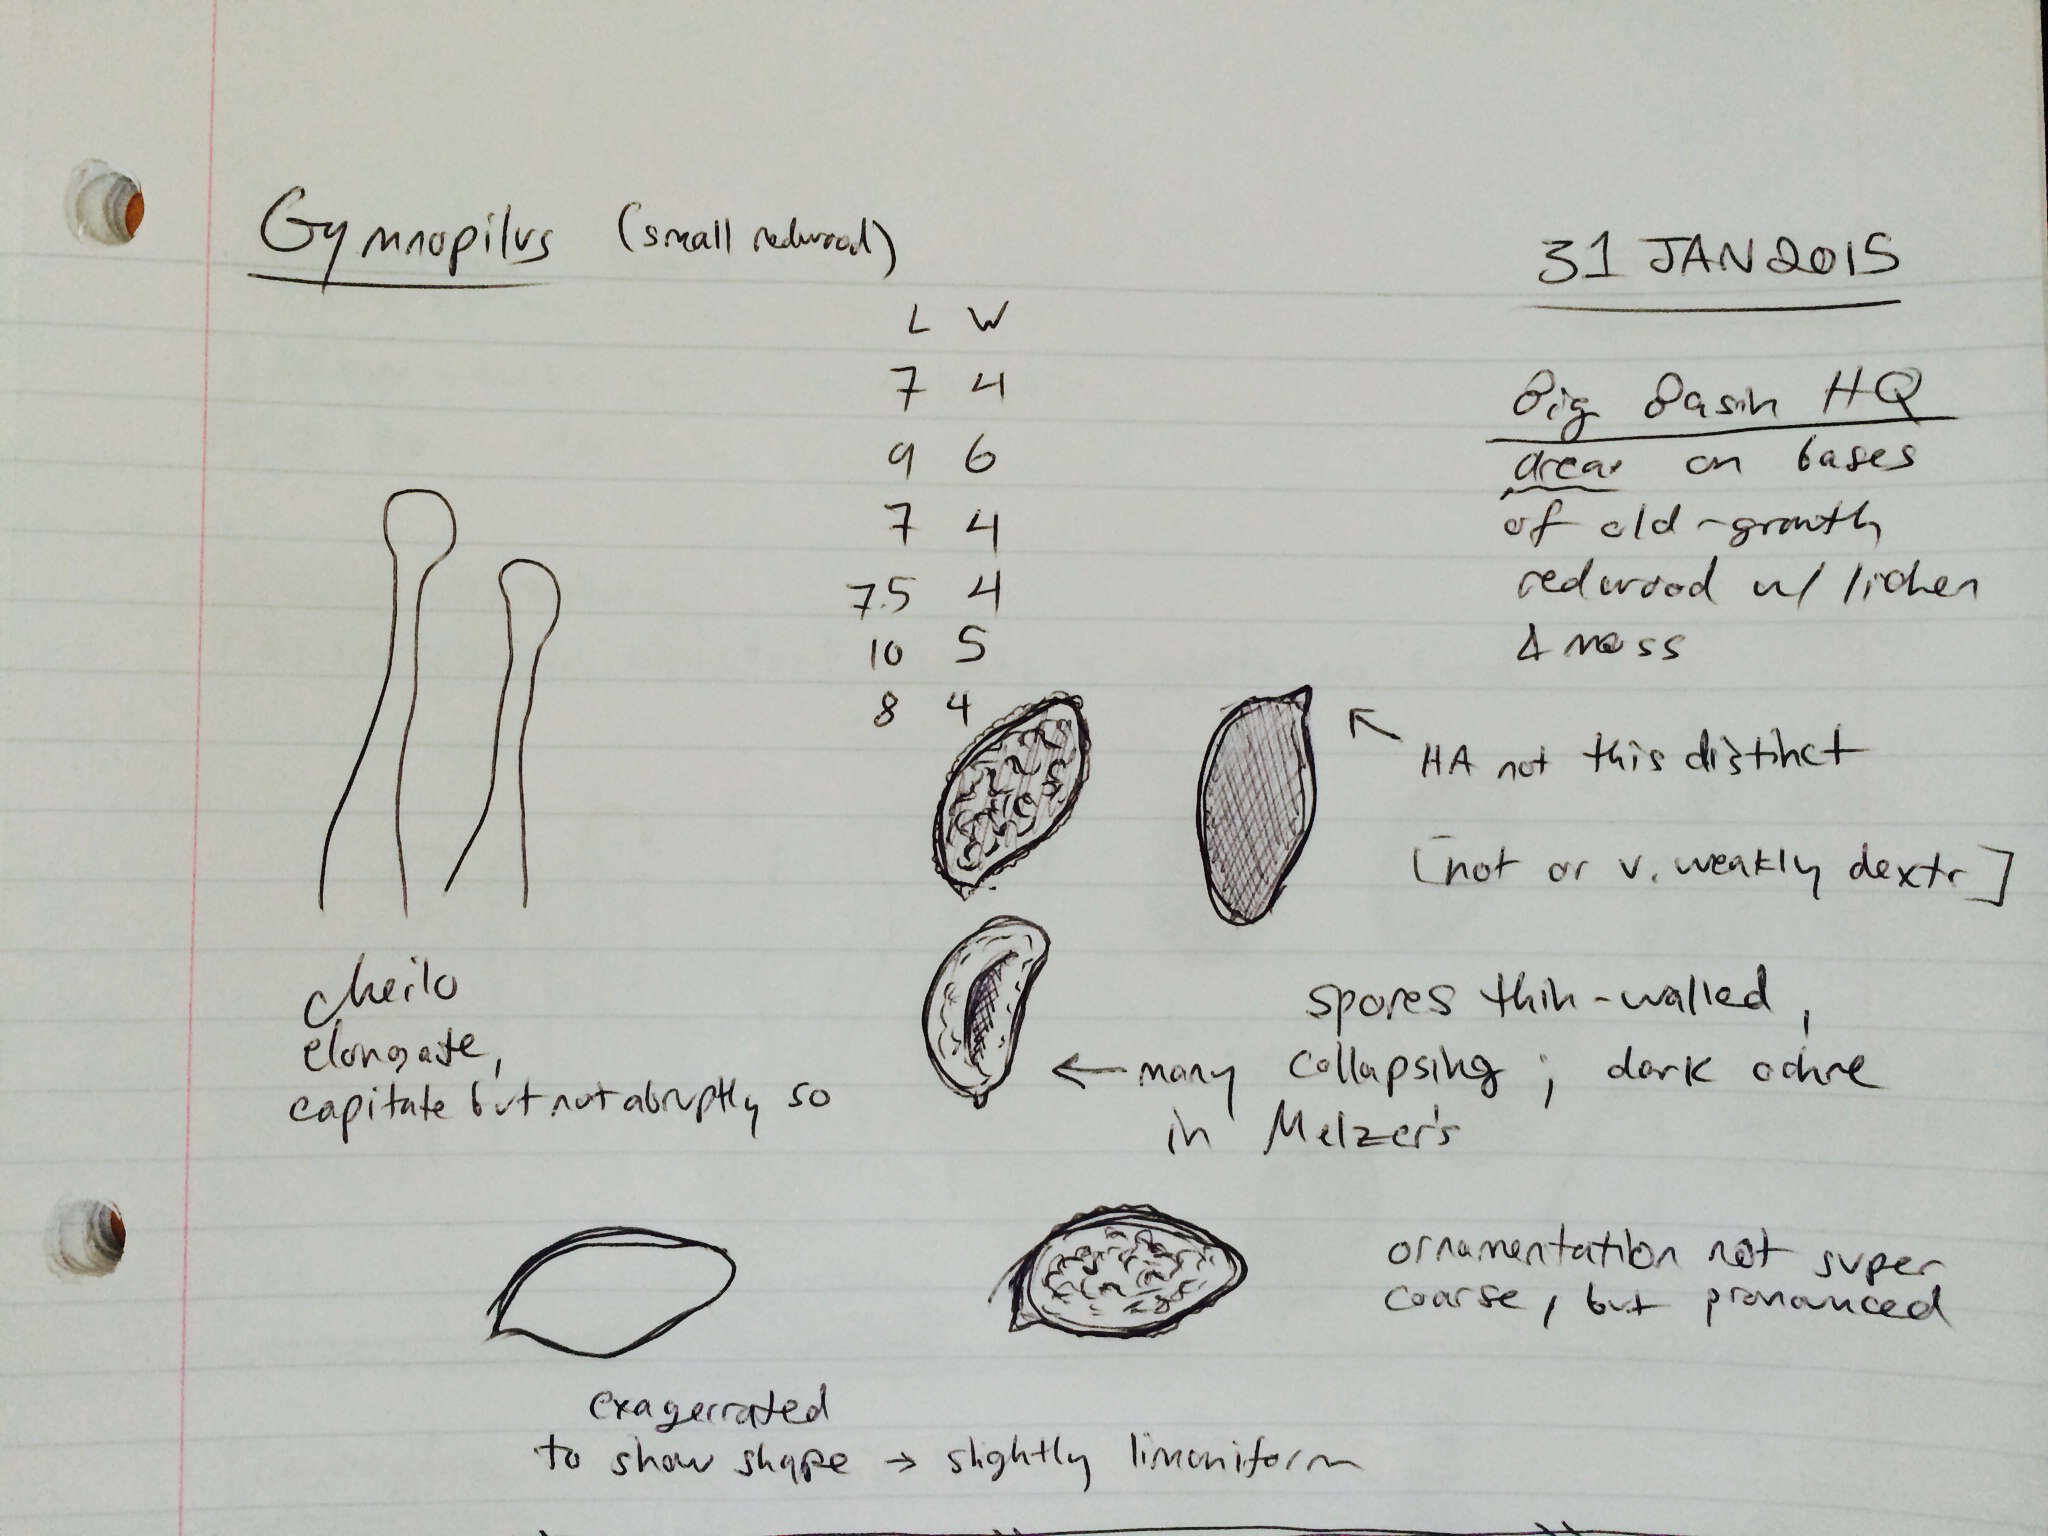 Gymnopilus (small redwood)
31 JAN 2015
L W
7 4
9 6
7 4
7.5 4
10 5
8 4
Big Basin HQ
area on bases
of old-growth
redwood w/ lichen
& moss
HA not this distinct
[not or v. weakly dextr]
cheilo
elongate,
capitate but not abruptly so
spores thin-walled,
← many collapsing; dark ochre
in Melzer's
ornamentation not super
coarse, but pronounced
exagerrated
to show shape → slightly limoniform